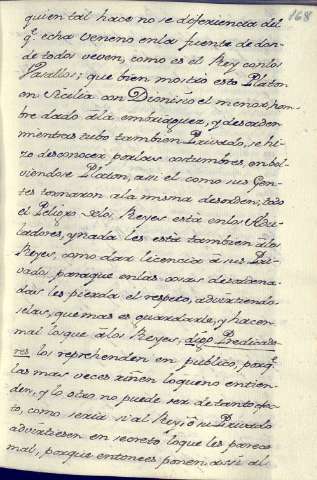 168
quien tal hace no se diferencia del
q.e echa veneno en la fuente de don-
de todos veven, como es el Rey con los
Vasallos; que bien mostró esto Platon
en Sicilia con Dionisio el menor, hom-
bre dado á la embriaguez, y desorden
mientras tubo tambien Privado, se hi-
zo desconocer, por las costumbres, en bol-
viendose Platon, asi el como sus Gen-
tes tornaron á la misma desorden; todo
el Peligro de los Reyes está en los Adu-
ladores, y nada les está tambien á los
Reyes, como dar licencia á sus Pri-
vados para que en las cosas desordena-
das les pierda el respeto, advirtiendo
selas, que mas es guardarle, y hacen
mal los que á los Reyes, digo Predicado-
res, los reprehenden en publico, porq.e
las mas veces riñen lo que no entien-
den, y lo otro no puede ser de tanto efec-
to, como seria si al Rey, ó su Privado
advirtiesen en secreto lo que les parece
mal, porque entonces ponen assi al